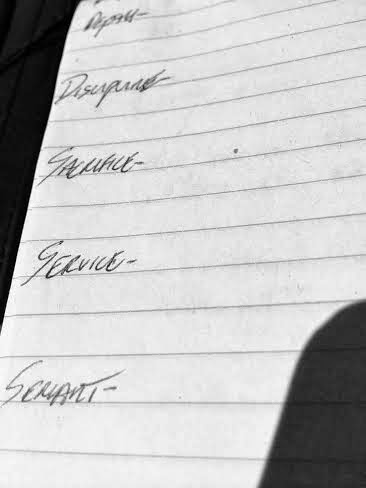 Discipline-
Sacrifice-
Service-
Servant-